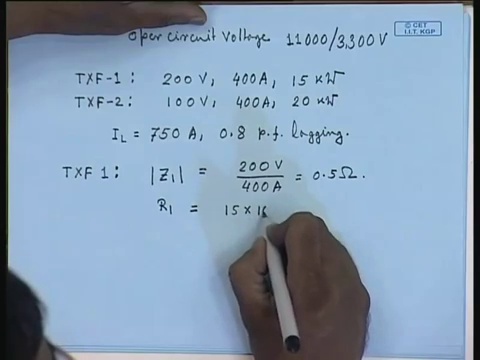 Open circuit Voltage 11000/3,300V
© CET
I.I.T. KGP
TXF-1: 200 V, 400A, 15 kW
TXF-2: 100 V, 400A, 20 kW
IL = 750 A, 0.8 p.f. lagging.
TXF 1: |Z1| = 200 V / 400 A = 0.5Ω.
R1 = 15 × 1